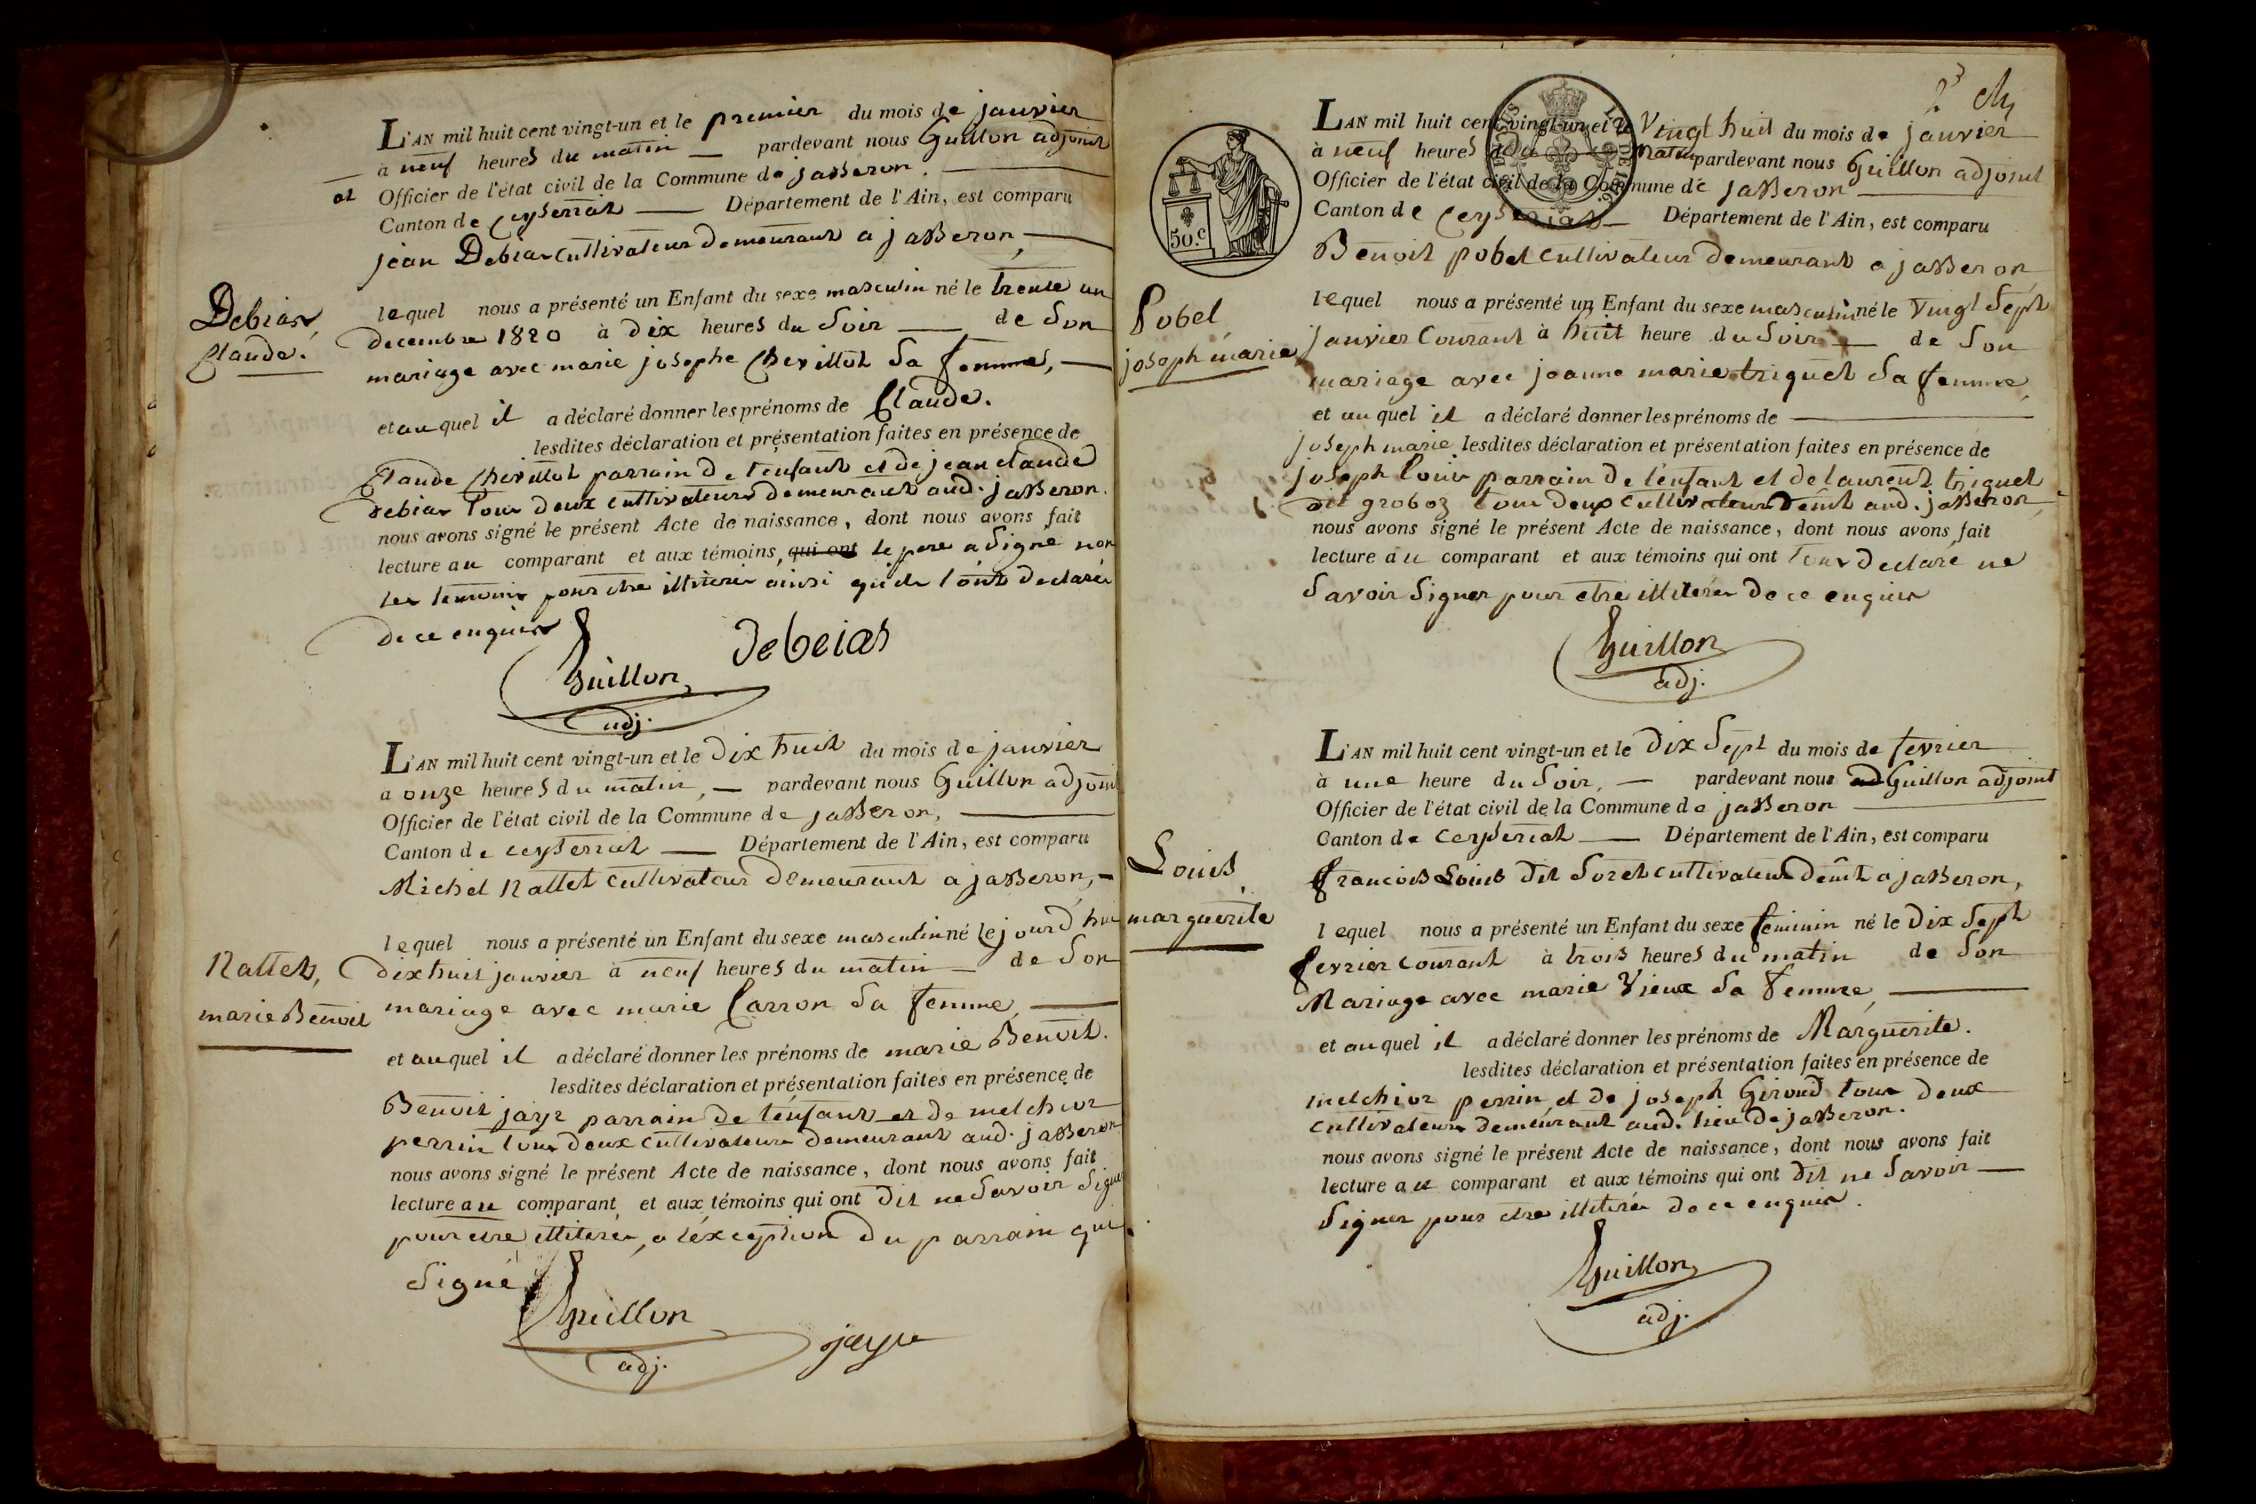 L'AN mil huit cent vingt-un et le premier du mois de janvier
a neuf heures du matin pardevant nous Guillon adjoint
et Officier de l'état civil de la Commune de jasseron.
Canton de Ceyseriat Département de l'Ain, est comparu
jean Debias cultivateur demeurant a jasseron,
Debias
Claude.
lequel nous a présenté un Enfant du sexe masculin né le trente un
decembre 1820 à dix heures du soir de son
mariage avec marie josephe Chevillot sa femme,
et auquel il a déclaré donner les prénoms de Claude.
lesdites déclaration et présentation faites en présence de
Claude Chevillot parrain de l'enfant et de jean claude
debias tous deux cultivateurs demeurant aud. jasseron.
nous avons signé le présent Acte de naissance, dont nous avons fait
lecture au comparant et aux témoins, qui ont le pere a signé non
les temoins pour etre illiterés ainsi qu'ils l'ont declarés
de ce enquis
Guillon
adj.
debeias
L'AN mil huit cent vingt-un et le dix huit du mois de janvier
a onze heures du matin, pardevant nous Guillon adjoint
Officier de l'état civil de la Commune de jasseron,
Canton de ceyseriat Département de l'Ain, est comparu
Michel Nallet cultivateur demeurant a jasseron,
Nallet,
marie Benoit
lequel nous a présenté un Enfant du sexe masculin né le jourd'hui
dix huit janvier à neuf heures du matin de son
mariage avec marie Carron sa femme,
et auquel il a déclaré donner les prénoms de marie Benoit.
lesdites déclaration et présentation faites en présence de
Benoit jayr parrain de l'enfant et de melchior
perrin tous deux cultivateurs demeurant aud. jasseron
nous avons signé le présent Acte de naissance, dont nous avons fait
lecture au comparant, et aux témoins qui ont dit ne savoir signer
pour etre illiterés, a l'éxception du parrain qui
signé
Guillon
adj.
jayr
23
50.c
L'AN mil huit cent vingt-un et le Vingt huit du mois de janvier
à neuf heures du matin pardevant nous Guillon adjoint
Officier de l'état civil de la Commune de jasseron
Canton de Ceyseriat Département de l'Ain, est comparu
Benoit pobel cultivateur demeurant a jasseron
Pobel,
joseph marie
lequel nous a présenté un Enfant du sexe masculin né le Vingt sept
janvier Courant à huit heure du soir de son
mariage avec jeanne marie triquet sa femme,
et auquel il a déclaré donner les prénoms de
joseph marie lesdites déclaration et présentation faites en présence de
joseph Louis parrain de l'enfant et de laurent triquet
dit groboz tous deux cultivateurs demt aud. jasseron,
nous avons signé le présent Acte de naissance, dont nous avons fait
lecture au comparant et aux témoins qui ont tous declaré ne
savoir signer pour etre illiterés de ce enquis
Guillon
adj.
L'AN mil huit cent vingt-un et le dix sept du mois de fevrier
à une heure du soir, pardevant nous ad Guillon adjoint
Officier de l'état civil de la Commune de jasseron
Canton de ceyseriat Département de l'Ain, est comparu
francois Louis dit soret cultivateur demt a jasseron,
Louis,
marguerite
lequel nous a présenté un Enfant du sexe feminin né le dix sept
fevrier courant à trois heures du matin de son
Mariage avec marie Vieux sa femme,
et auquel il a déclaré donner les prénoms de Marguerite.
lesdites déclaration et présentation faites en présence de
melchior perrin, et de joseph Giroud tous deux
cultivateurs demeurant aud. lieu de jasseron.
nous avons signé le présent Acte de naissance, dont nous avons fait
lecture au comparant et aux témoins qui ont dit ne savoir
signer pour etre illiterés de ce enquis.
Guillon
adj.